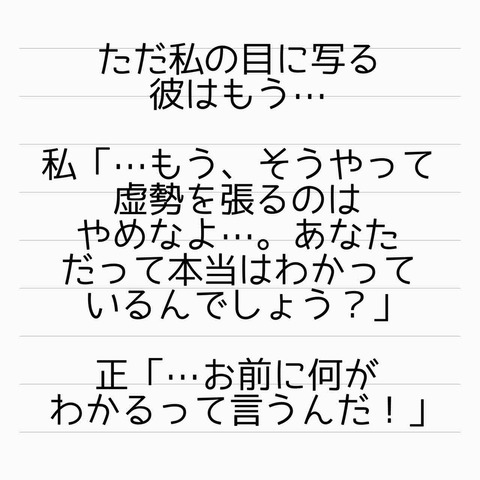 ただ私の目に写る
彼はもう…
私「…もう、そうやって
虚勢を張るのは
やめなよ…。あなた
だって本当はわかって
いるんでしょう？」
正「…お前に何が
わかるって言うんだ！」